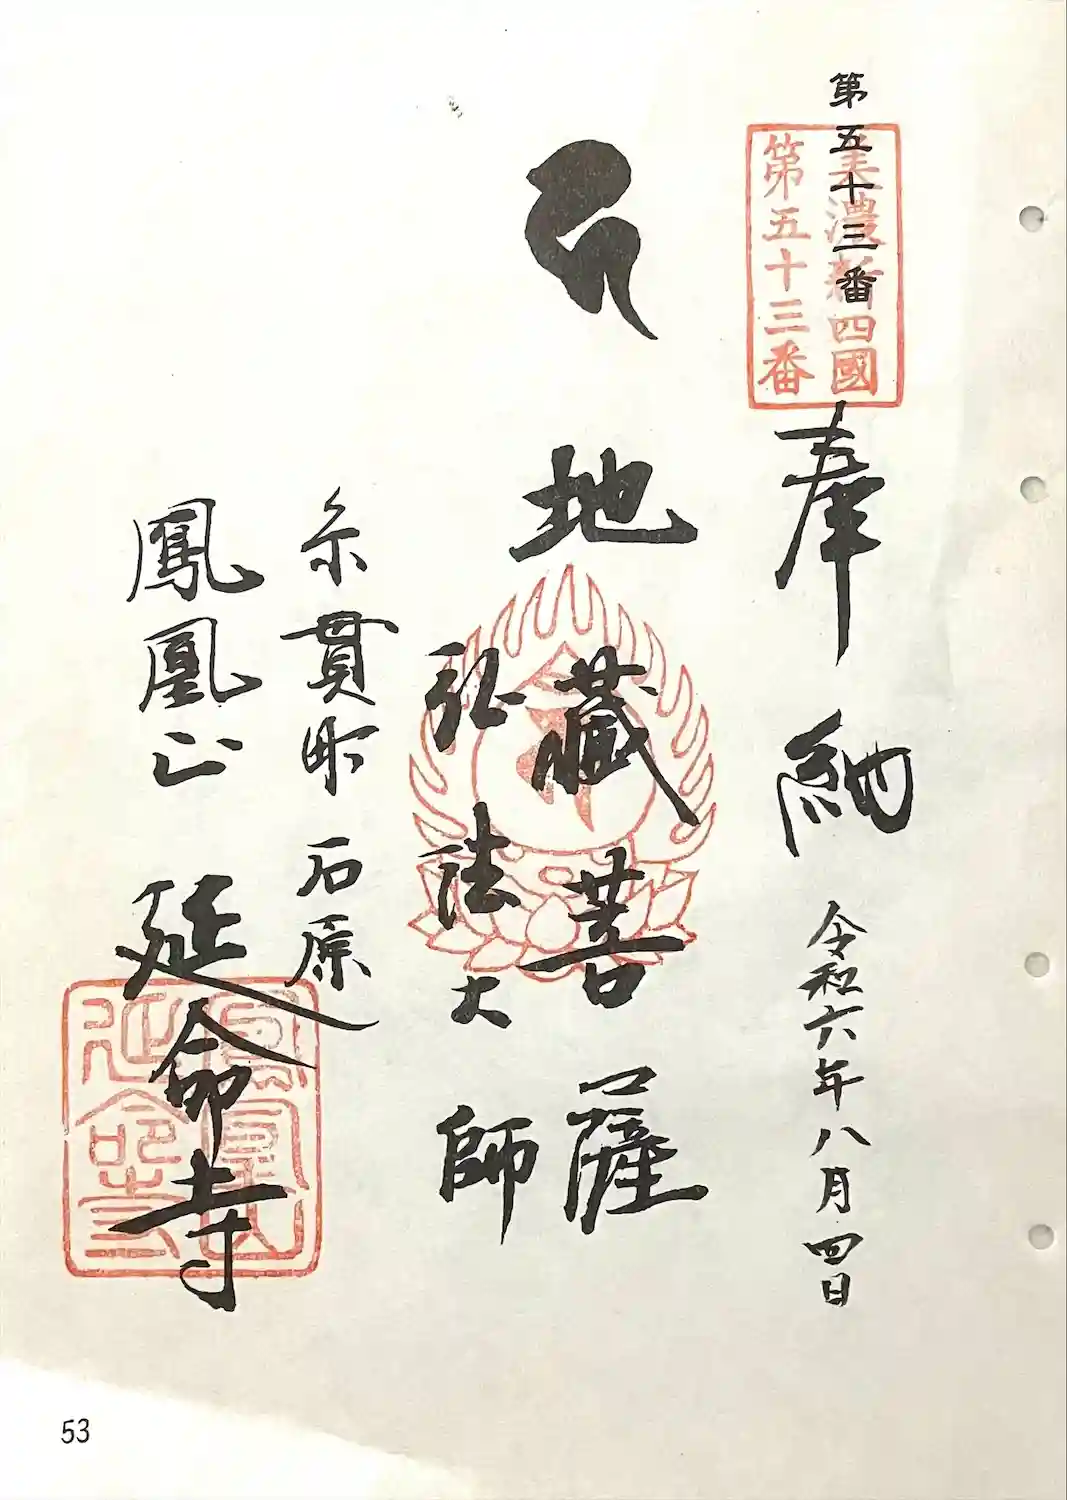 第五十三番
美濃新四國
第五十三番
奉納
令和六年八月四日
地蔵菩薩
弘法大師
糸貫町石原
鳳凰山
延命寺
鳳凰山
延命寺
53